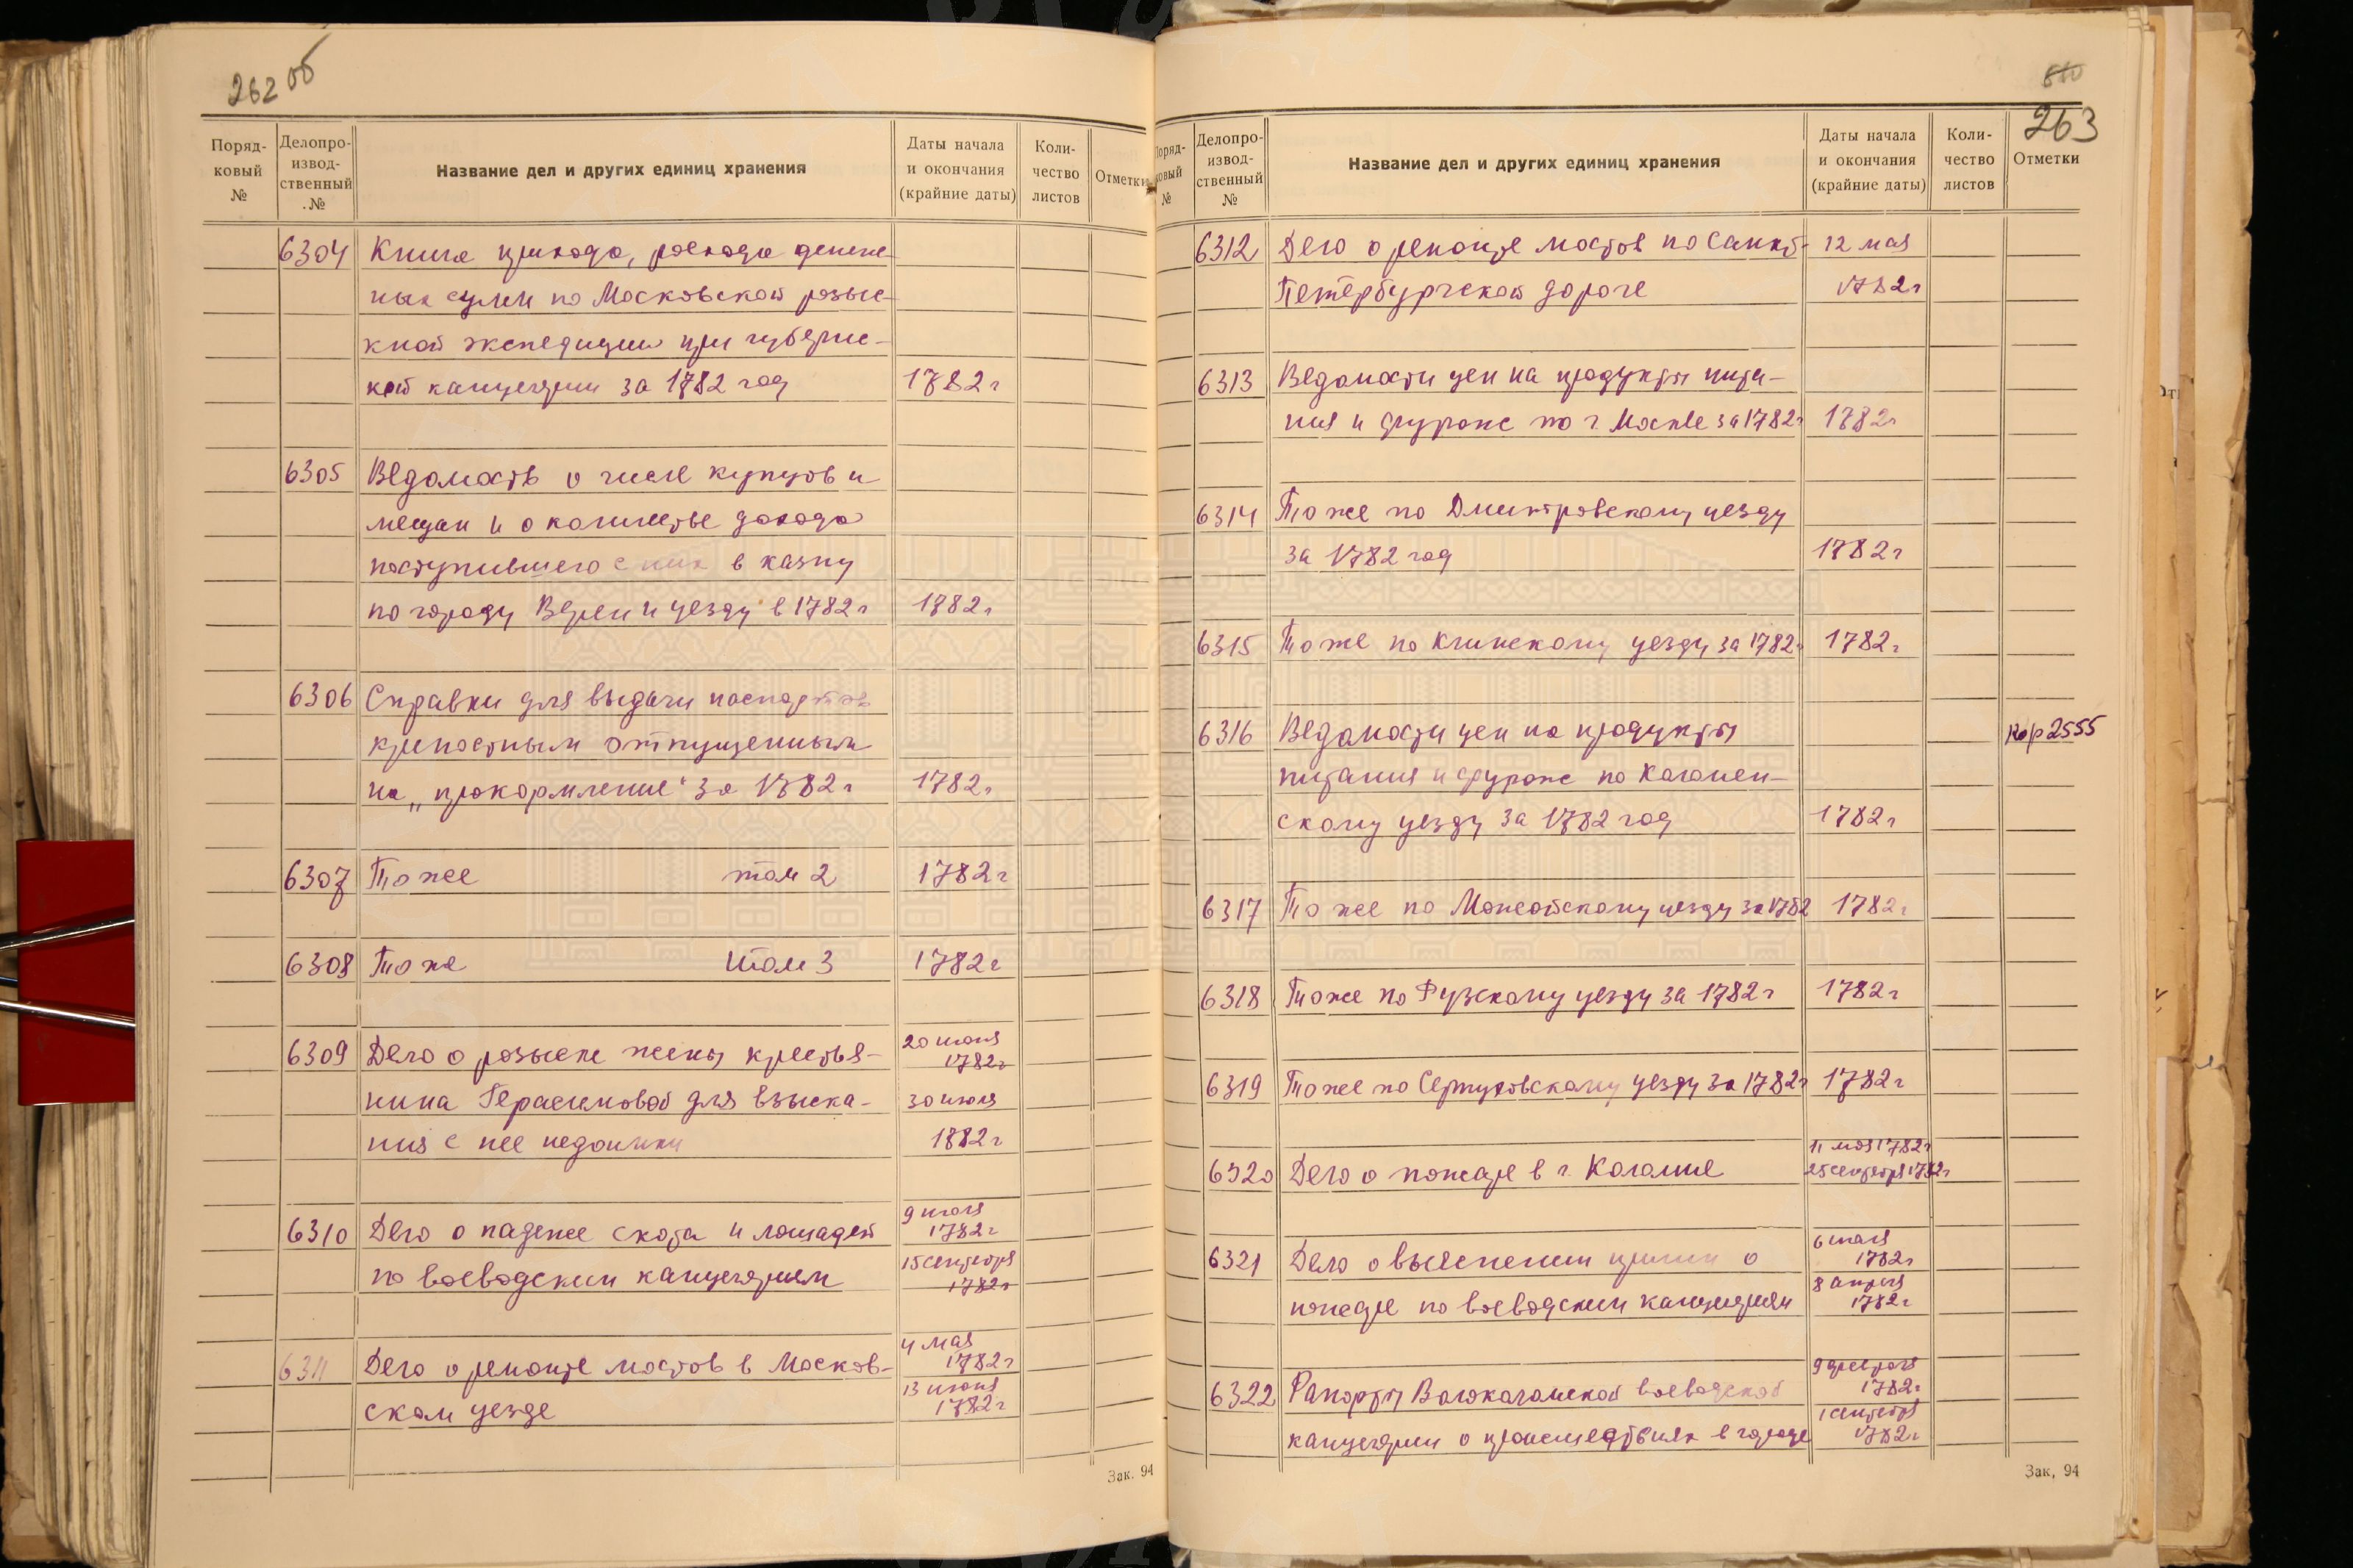 262 об
Поряд-
ковый
№
Делопро-
извод-
ственный
№
Название дел и других единиц хранения
Даты начала
и окончания
(крайние даты)
Коли-
чество
листов
Отметки
6304 Книга прихода, расхода денеж-
ных сумм по Московской розыс-
кной экспедиции при губернс-
кой канцелярии за 1782 год 1782 г
6305 Ведомость о числе купцов и
мещан и о количестве дохода
поступившего с них в казну
по городу Вереи и уезду в 1782 г 1782 г
6306 Справки для выдачи паспортов
крепостным отпущенным
на „прокормление“ за 1782 г 1782 г
6307 Тоже том 2 1782 г
6308 Тоже том 3 1782 г
6309 Дело о розыске жены крестья- 20 июня
1782 г
нина Герасимовой для взыска- 30 июля
ния с нее недоимки 1782 г
6310 Дело о падеже скота и лошадей 9 июля
1782 г
по воеводским канцеляриям 15 сентября
1782 г
6311 Дело о ремонте мостов в Москов- 4 мая
1782 г
ском уезде 13 июня
1782 г
Зак. 94
263
Поряд-
ковый
№
Делопро-
извод-
ственный
№
Название дел и других единиц хранения
Даты начала
и окончания
(крайние даты)
Коли-
чество
листов
Отметки
6312 Дело о ремонте мостов по Санкт- 12 мая
Петербургской дороге 1782 г
6313 Ведомости цен на продукты пита-
ния и фураж по г Москве за 1782 г 1782 г
6314 Тоже по Дмитровскому уезду
за 1782 год 1782 г
6315 Тоже по Клинскому уезду за 1782 г 1782 г
6316 Ведомости цен на продукты Кор 2555
питания и фураж по Коломен-
скому уезду за 1782 год 1782 г
6317 Тоже по Можайскому уезду за 1782 1782 г
6318 Тоже по Рузскому уезду за 1782 г 1782 г
6319 Тоже по Серпуховскому уезду за 1782 г 1782 г
6320 Дело о пожаре в г. Коломне 11 мая 1782 г
25 сентября 1782 г
6321 Дело о выяснении причин о 6 мая
1782 г
пожаре по воеводским канцеляриям 8
1782 г
6322 Рапорты Волоколамской воеводской 9 февраля
1782 г
канцелярии о происшествиях в городе 1 сентября
1782 г
Зак. 94